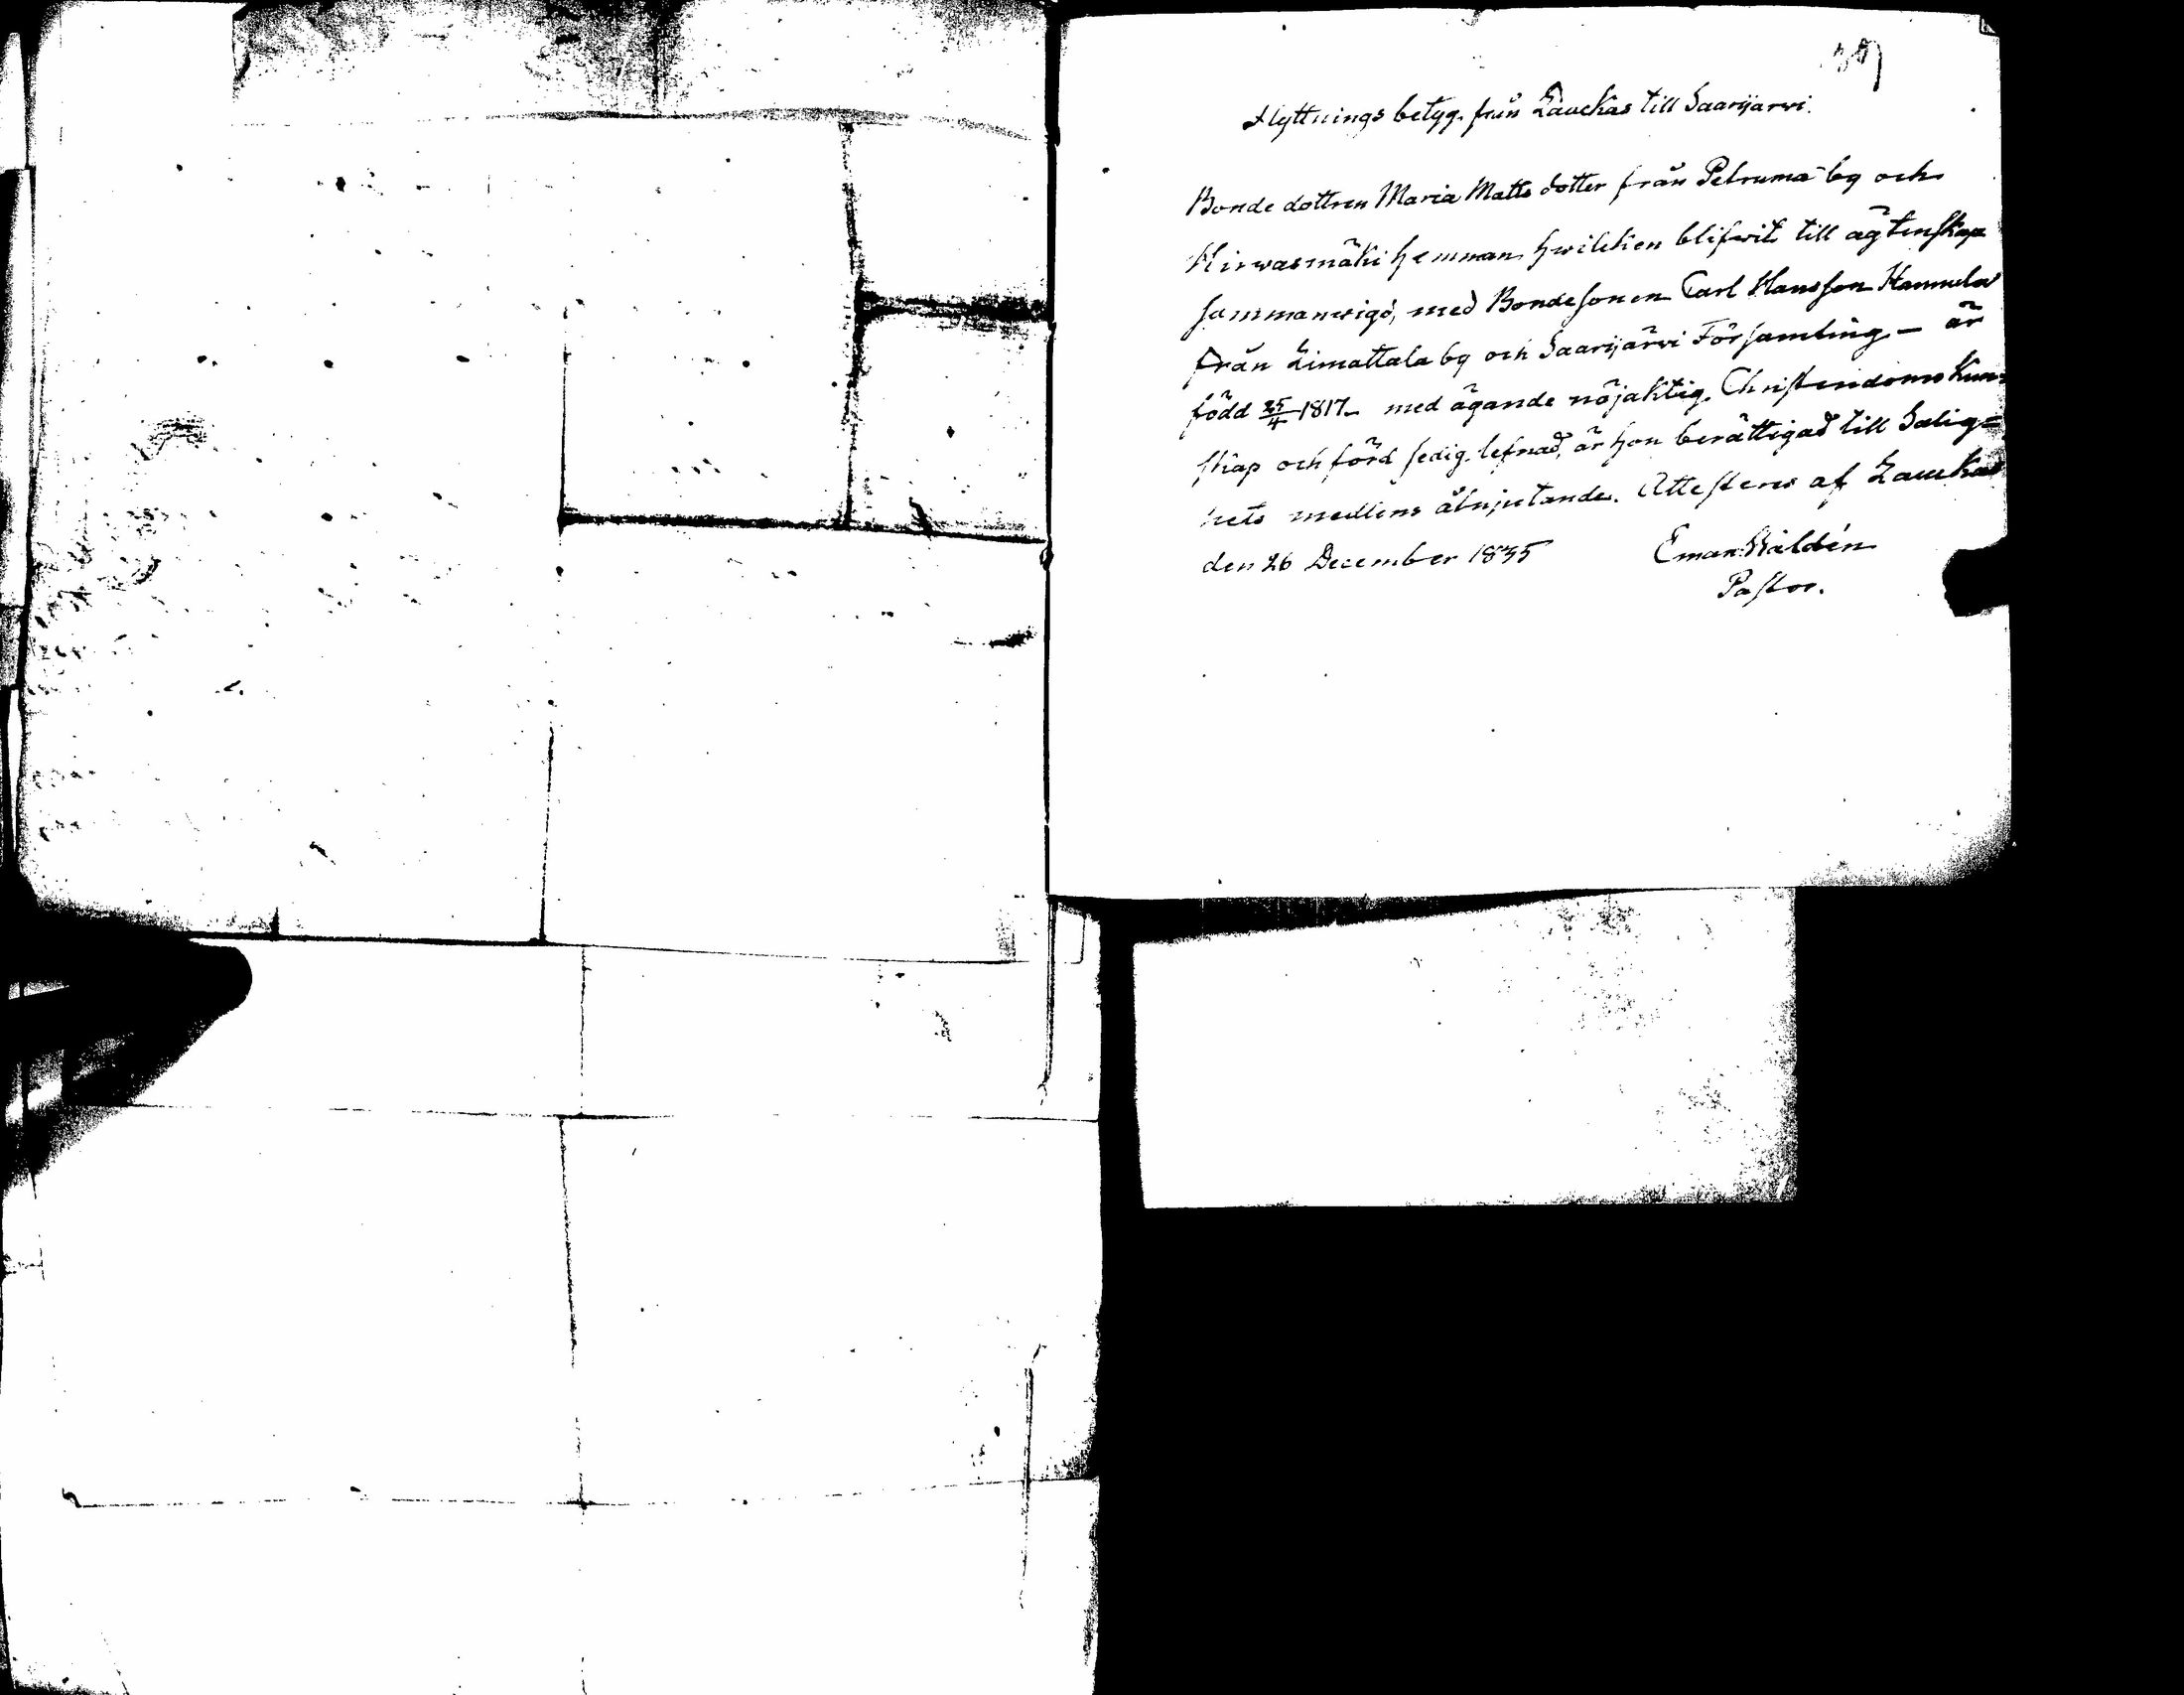 Flyttnings betyg från Laukas till Saarijärwi.
Bonde dottren Maria Matts dotter från Petruma by och
Hirwasmäki hemman hwilcken blifwit till ägtenskap
sammanwigd, med Bondesonen Carl Hansson Hannula
från Limattala by och Saarijärvi Församling – är
född 25/4 1817 – med ägande nöjaktig Christendoms kun=
skap och förd sedig lefnad, är hon berättigad till Salig=
hets medlens åtnjutande. Attesteras af Laukas
den 26 December 1835 Eman: Waldén
Pastor.